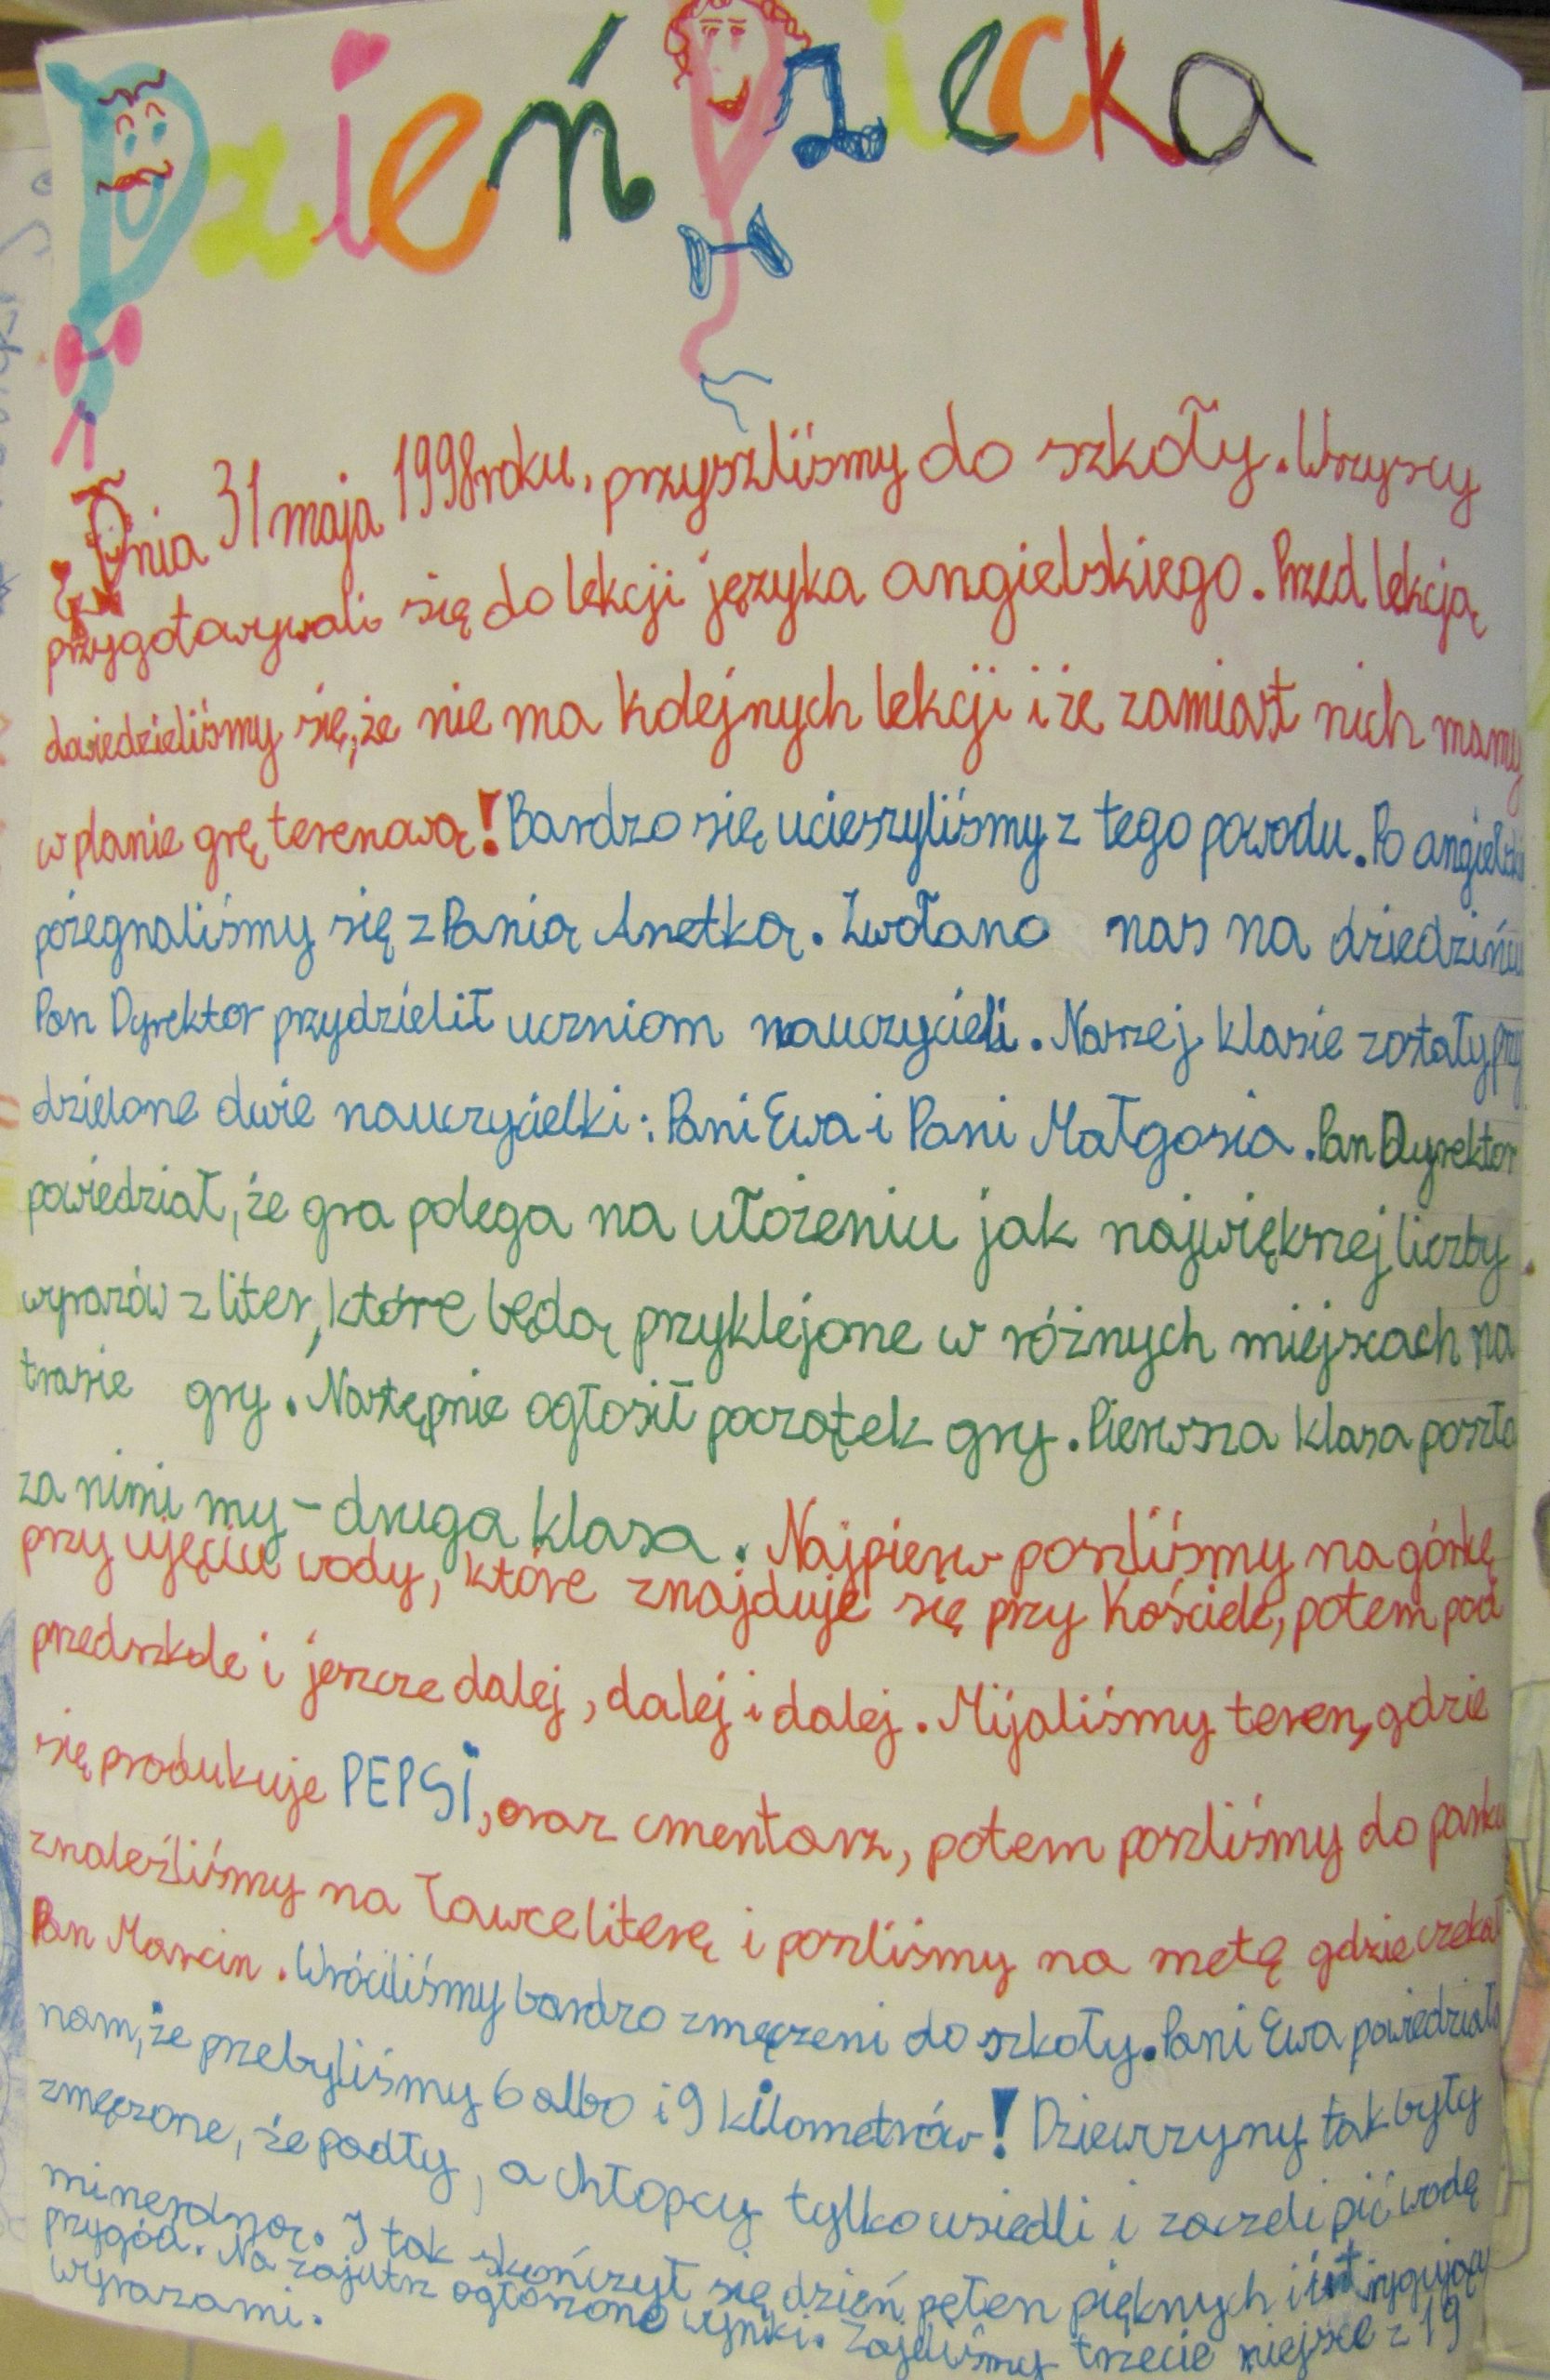 Dzień Dziecka
Dnia 31 maja 1998 roku, przyszliśmy do szkoły. Wszyscy
przygotowywali się do lekcji języka angielskiego. Przed lekcją
dowiedzieliśmy się, że nie ma kolejnych lekcji i że zamiast nich mamy
w planie grę terenową! Bardzo się ucieszyliśmy z tego powodu. Po
pożegnaliśmy się z Panią Anetką. Zwołano nas na
Pan Dyrektor przydzielił uczniom nauczycieli. Naszej klasie zostały przy
dzielone dwie nauczycielki: Pani Ewa i Pani Małgosia. Pan Dyrektor
powiedział, że gra polega na ułożeniu jak największej liczby
wyrazów z liter, które będą przyklejone w różnych miejscach na
trasie gry. Następnie ogłosił początek gry. Pierwsza klasa poszła
za nimi my - druga klasa. Najpierw poszliśmy na górkę
przy ujęciu wody, które znajduje się przy Kościele, potem pod
przedszkole i jeszcze dalej, dalej i dalej. Mijaliśmy teren, gdzie
się produkuje PEPSI, oraz cmentarz, potem poszliśmy do parku
znaleźliśmy na ławce literę i poszliśmy na metę gdzie czekał
Pan Marcin. Wróciliśmy bardzo zmęczeni do szkoły. Pani Ewa powiedziała
nam, że przebyliśmy 6 albo i 9 kilometrów! Dziewczyny tak były
zmęczone, że padły, a chłopcy tylko usiedli i zaczeli pić wodę
mineralną. I tak skończył się dzień pełen pięknych i
przygód. Na zajutrz ogłoszono wyniki. Zajeliśmy trzecie miejsce z 19
wyrazami.